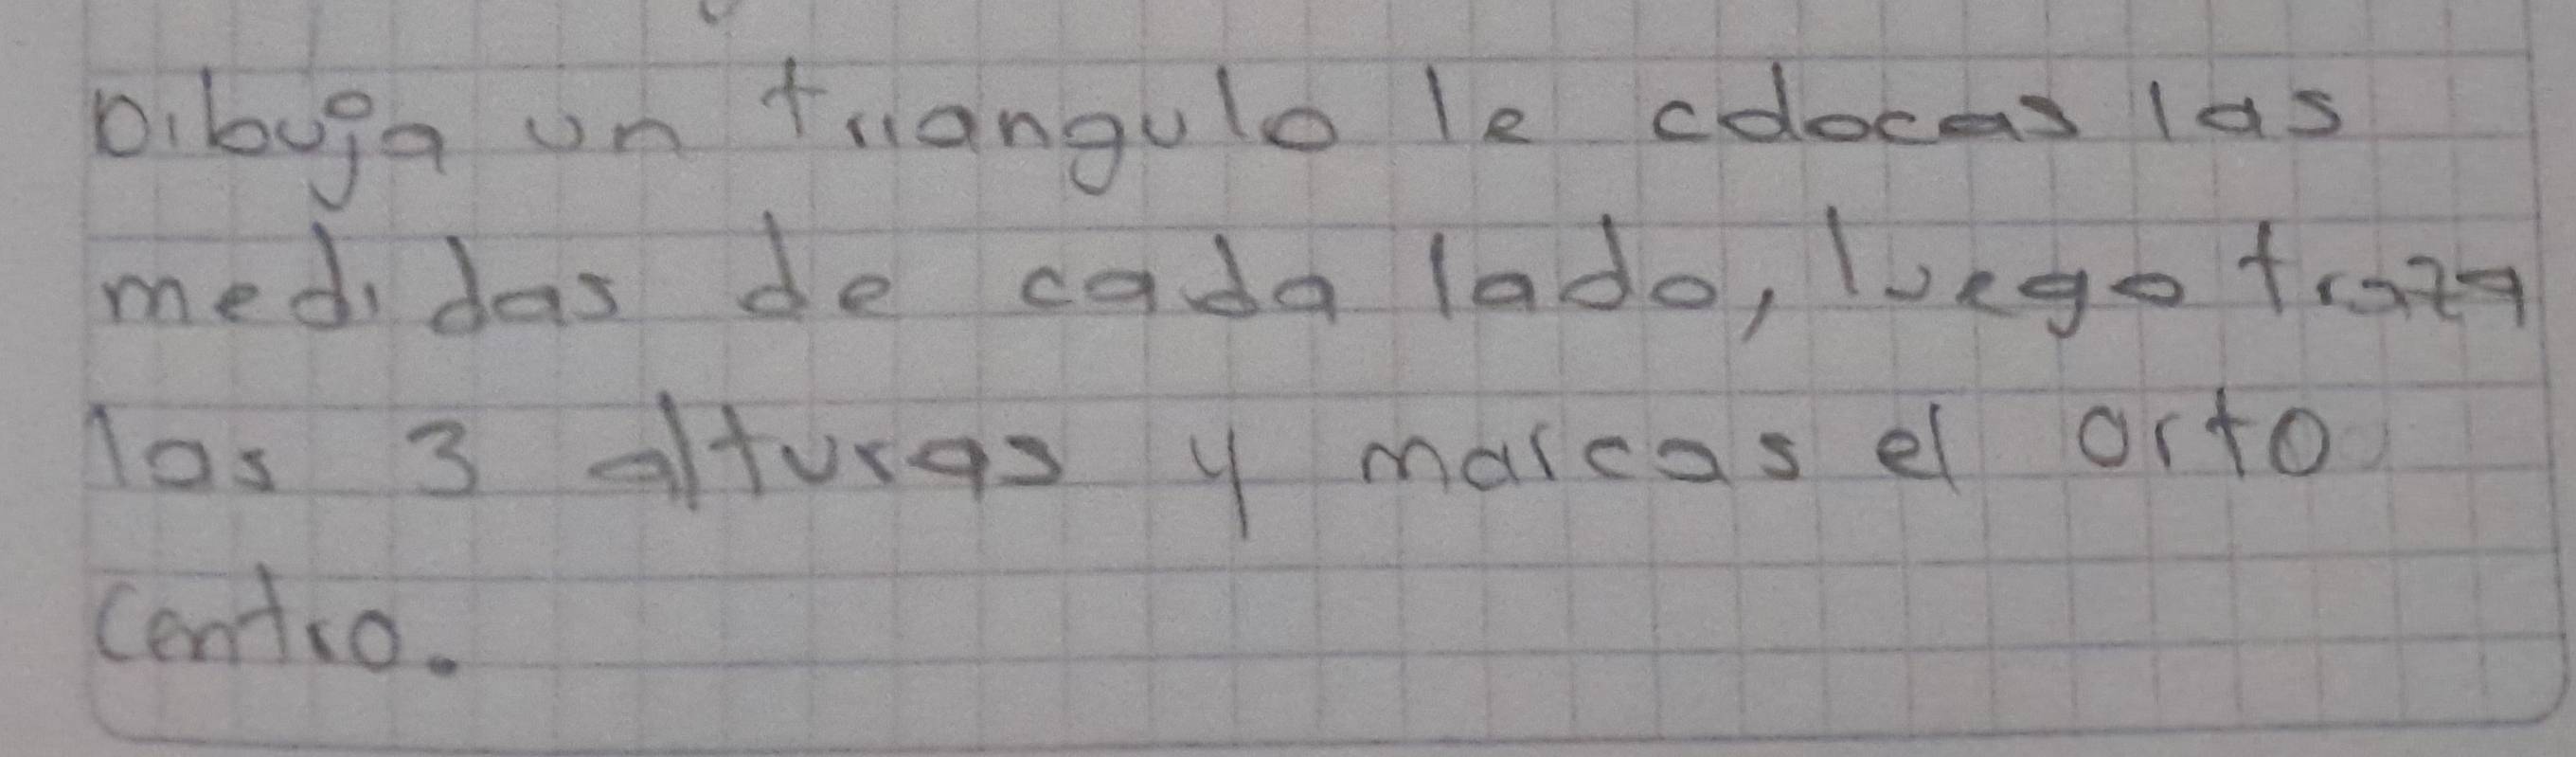 Dibuja un triangulo le colocas las
medidas de cada lado, luego traza
las 3 alturas y marcas el orto
centro.